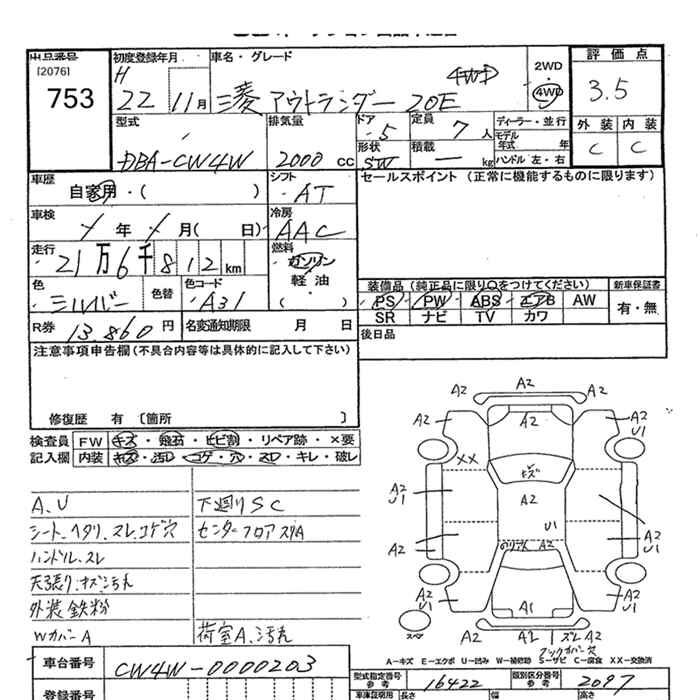 出品番号
[2076]
753
初度登録年月
H 22 11月
車名・グレード
三菱 アウトランダー 20E
4WD
2WD
・
4WD
評価点
3.5
外装 内装
C C
型式
DBA-CW4W
排気量
2000 cc
ドア
5
形状
SW
定員
7 人
積載
kg
ディーラー・並行
モデル
年式 年
ハンドル 左・右
車歴
自家用・( )
シフト
AT
セールスポイント (正常に機能するものに限ります)
車検
年 月( 日)
冷房
AAC
走行
21万6千812km
燃料
ガソリン
軽油
( )
色
シルバー
色替
色コード
A31
R券 13,860円
名変通知期限 月 日
装備品(純正品に限り○をつけてください)
PS PW ABS エアB AW
SR ナビ TV カワ
新車保証書
有・無
後日品
注意事項申告欄(不具合内容等は具体的に記入して下さい)
修復歴 有 [箇所 ]
検査員
記入欄
FW キズ・飛石・ヒビ割・リペア跡・×要
内装 キズ・汚レ・コゲ・穴・スレ・キレ・破レ
A.U
シート、ヘタリ、スレ、コゲ穴
ハンドル、スレ
天張り、キズ汚れ
外装鉄粉
WカバーA
下廻りSC
センターフロアスリA
荷室A、汚れ
A2 A2 A2
A2 A2 A2
U1
XX
キズ
A2
U1
A2
A2
U1
U1
A2 A2
A2
U1
A2
U1
A1
A2
U1
スペア
A2 A2 ズレ A2
バックカバー欠
A-キズ E-エクボ U-凹み W-補修跡 S-サビ C-腐食 XX-交換済
車台番号
CW4W-0000203
型式指定番号
参考
16422
類別区分番号
参考
2097
登録番号
車庫証明用
長さ
幅
高さ